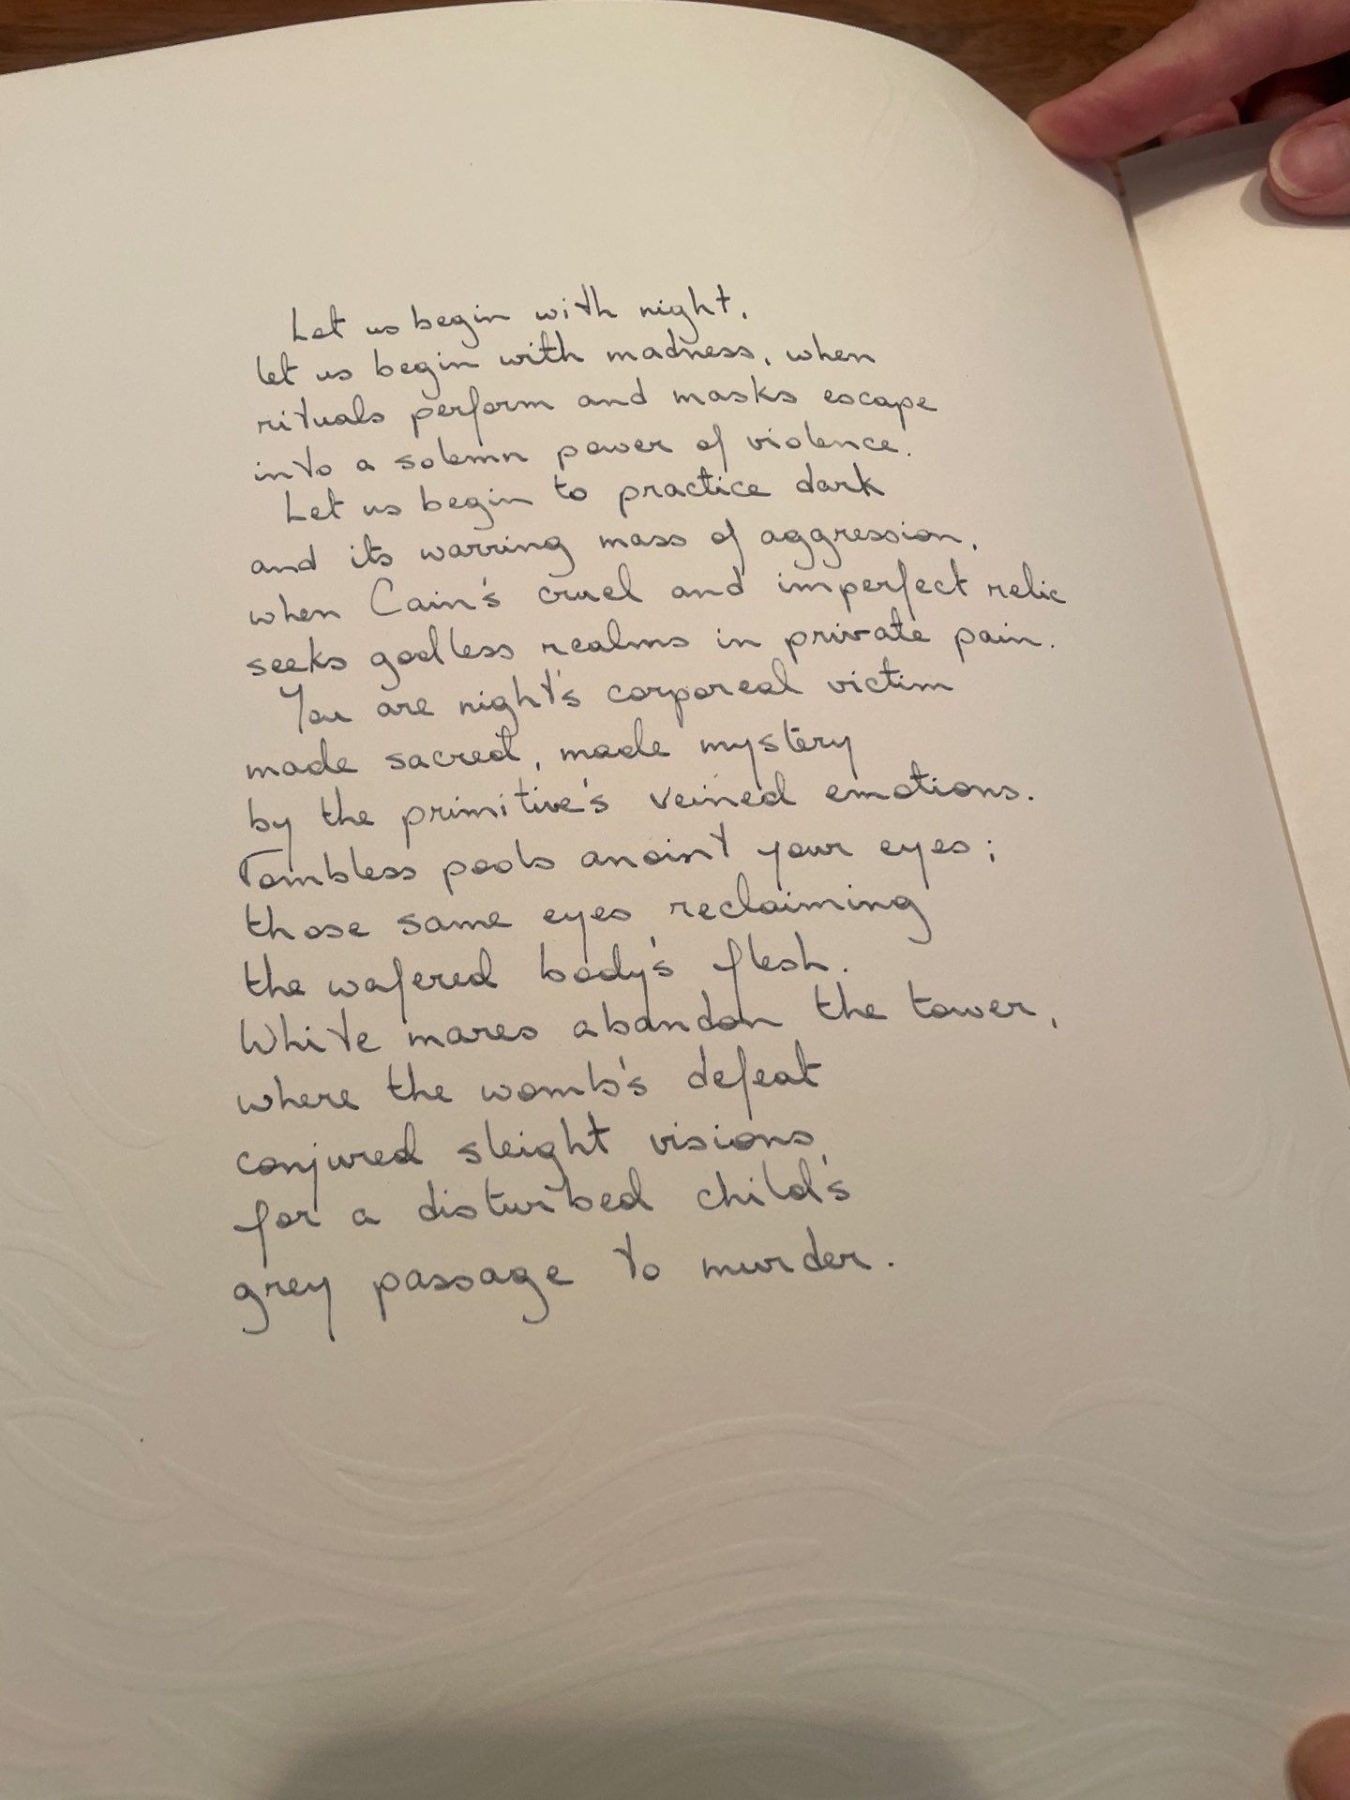 Let us begin with night,
let us begin with madness, when
rituals perform and masks escape
into a solemn power of violence.
Let us begin to practice dark
and its warring mass of aggression,
when Cain's cruel and imperfect relic
seeks godless realms in private pain.
You are night's corporeal victim
made sacred, made mystery
by the primitive's veined emotions.
Tombless pools anoint your eyes;
those same eyes, reclaiming
the wafered body's flesh.
White mares abandon the tower,
where the womb's defeat
conjured sleight visions,
for a disturbed child's
grey passage to murder.